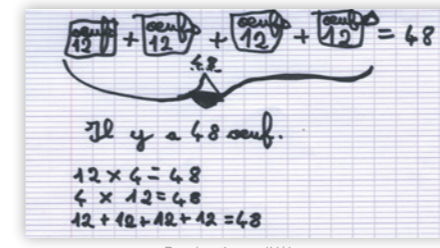 oeuf 12 + oeuf 12 + oeuf 12 + oeuf 12 = 48
48
Il y a 48 oeuf.
12 × 4 = 48
4 × 12 = 48
12 + 12 + 12 + 12 = 48